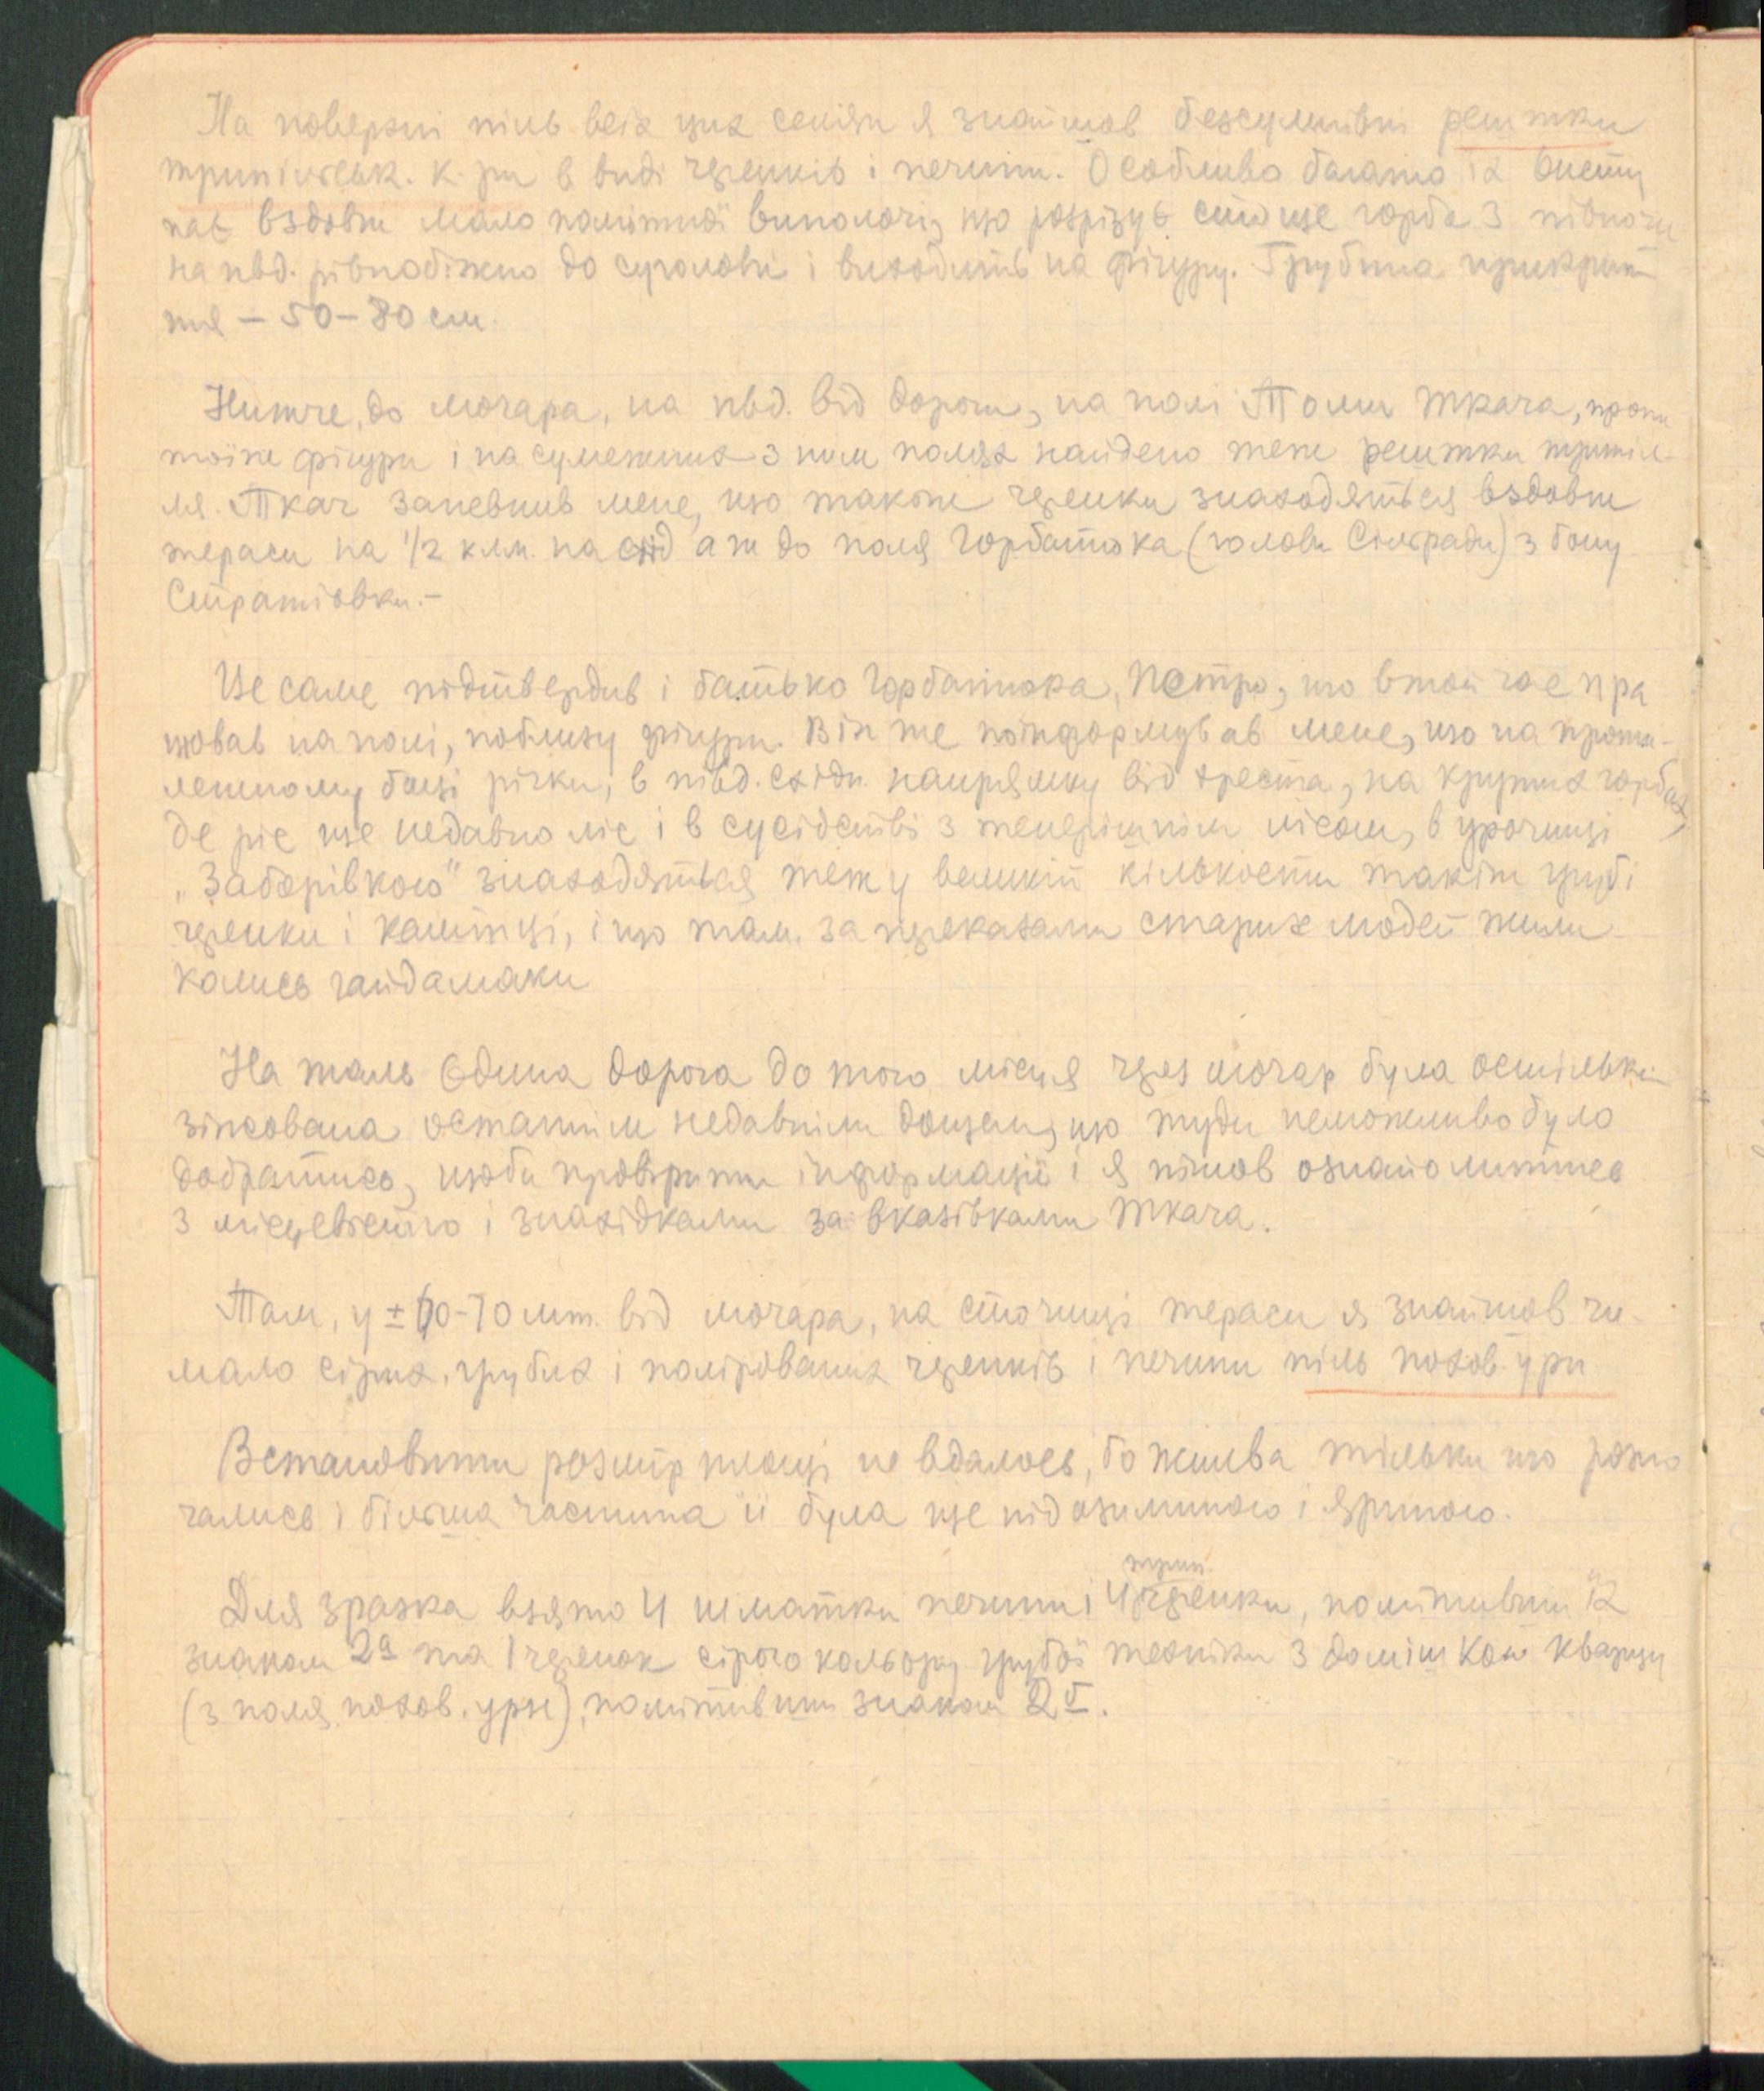 На поверхні піль всіх цих селян я знайшов безсумнівні рештки
трипільськ. к-ри в виді черепків і печини. Особливо багато їх висту
пає вздовж мало помітної виполочі, що розрізує стовще горба з півночи
на пвд. рівнобіжно до суголови і виходить на фігуру. Грубина прикрит
тя – 50–80 см.
Нижче, до мочара, на пвд. від дороги, на полі Томи Ткача, проти
тоїж фігури і на сумежних з ним полях найдено теж решткі трипіл-
ля. Ткач запевнив мене, що також черепки знаходяться вздовж
тераси на 1/2 клм. на схід аж до поля Горбатюка (голови Сільради) з боку
Стратіовки.–
Це саме підтвердив і батько Горбатюка, Петро, що в той час пра
цював на полі, поблизу фігури. Він же поінформував мене, що на проти-
лежному боці річки, в півд. східн. напрямку від хреста, на крутих горбах,
де ріс ще недавно ліс і в сусідстві з теперішнім лісом, в урочищі
„Заборівкою" знаходяться теж у великій кількости такіж грубі
черепки і камінці, і що там за переказами старих людей жили
колись гайдамаки.
На жаль єдина дорога до того місця через мочар була остільки
зіпсована останнім недавнім дощем, що туди неможливо було
добратись, щоби провірити інформації і я пішов ознайомитись
з місцевістю і знахідками за вказівками Ткача.
Там, у ± 60-70 мт. від мочара, на сточищі тераси я знайшов чи-
мало сірих, грубих і полірованих черепків і печини піль похов. урн
Встановити розмір площі не вдалось, бо жнива тільки що розпо
чались і більша частина її була ще під озиминою і яриною.
трип.
Для зразка взято 4 шматки печини і 4 черепки, помітивши їх
знаком 2а та 1 черепок сірого кольору, грубої техніки з домішкою кварцу
(з поля похов. урн), помітивши знаком 2б.